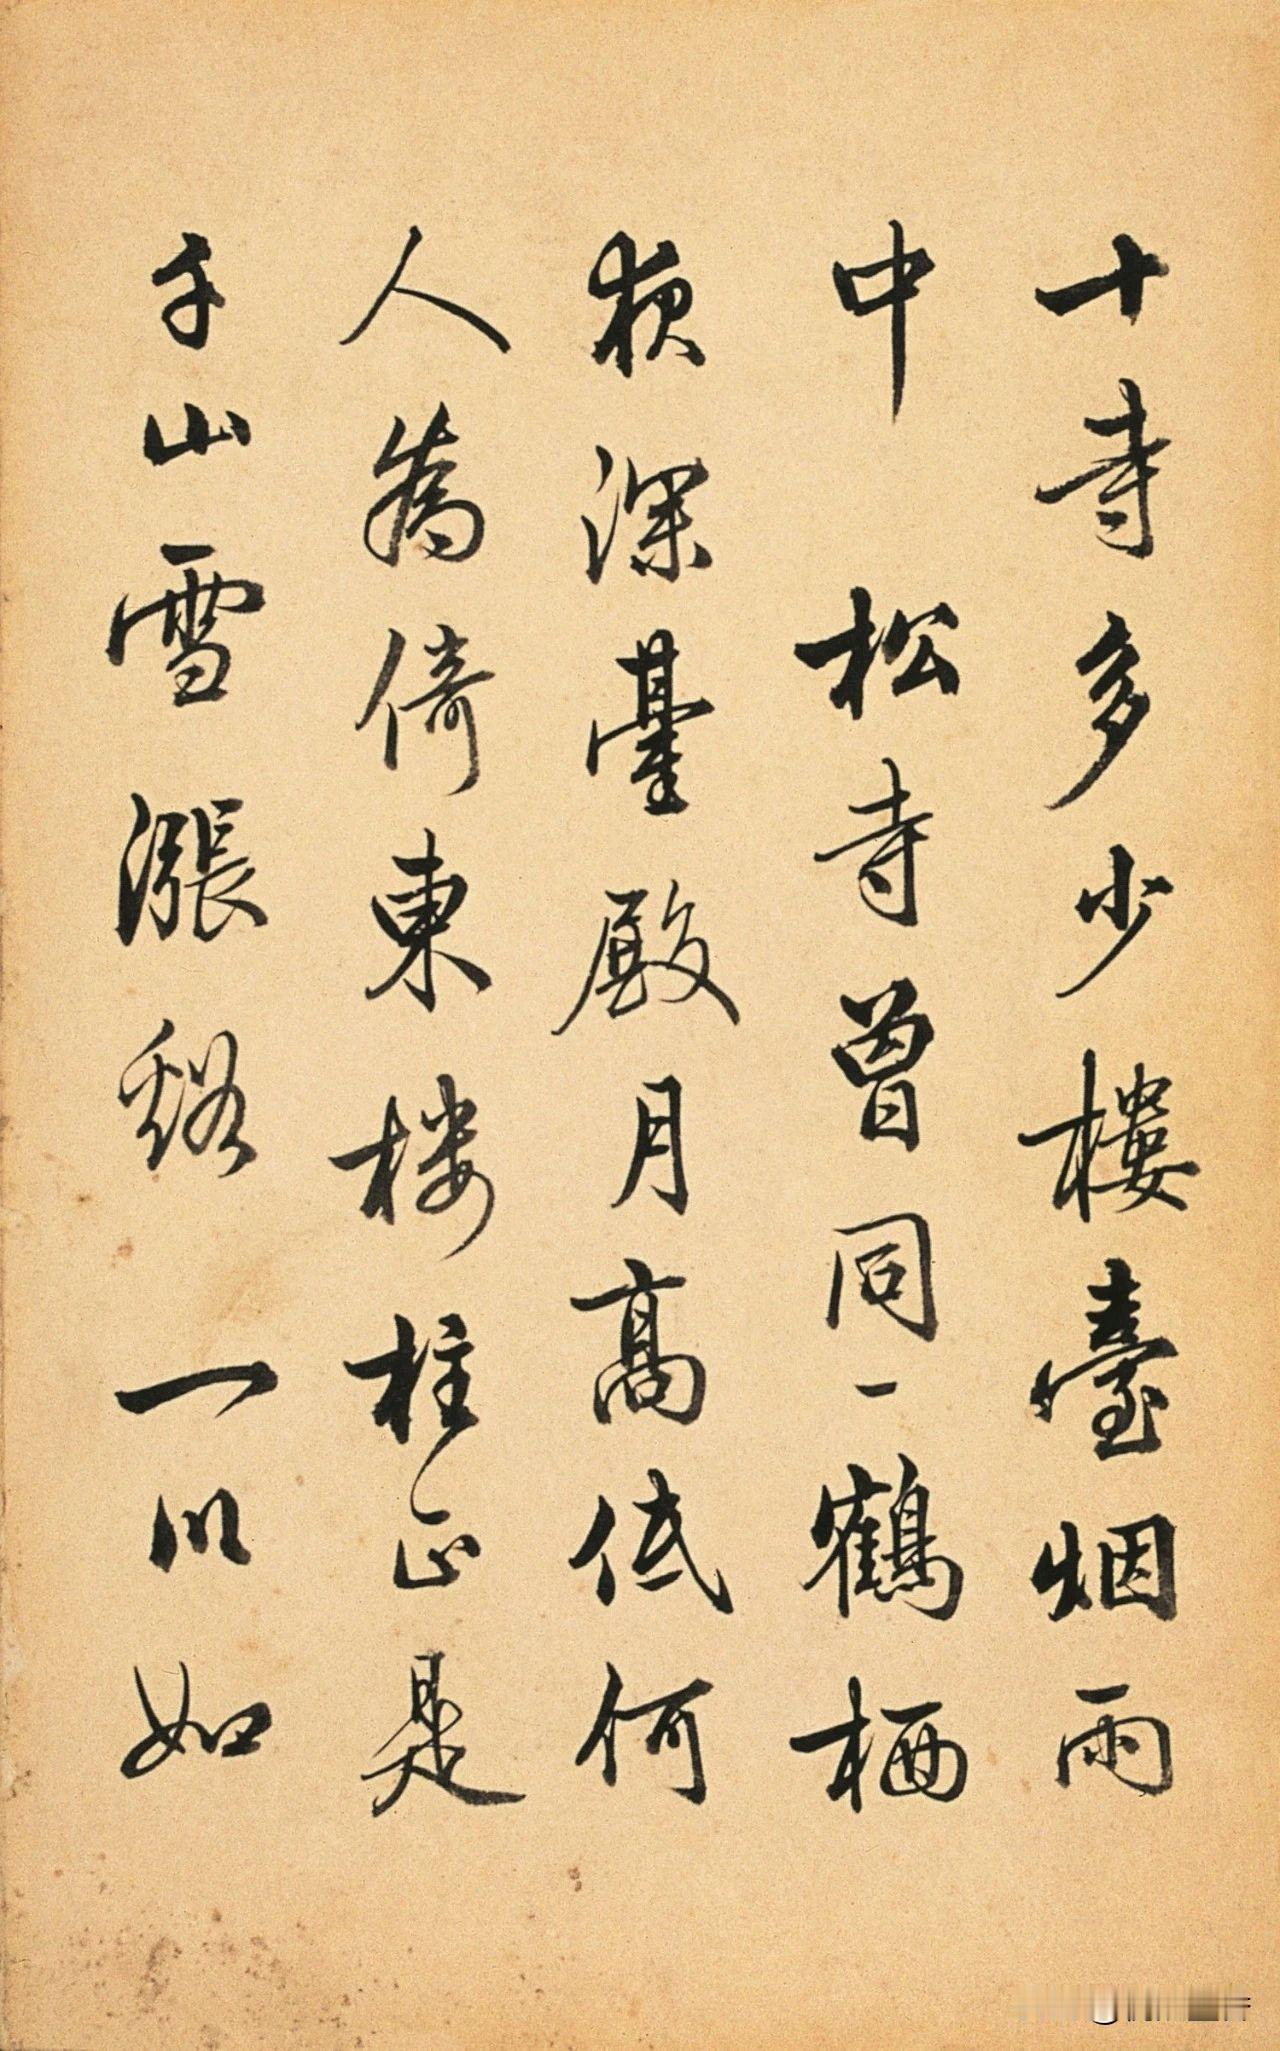 十寺多少樓臺烟雨
中 松寺曾同一鶴栖
夜深臺殿月高低何
人為倚東楼柱正是
千山雪漲谿 一以如